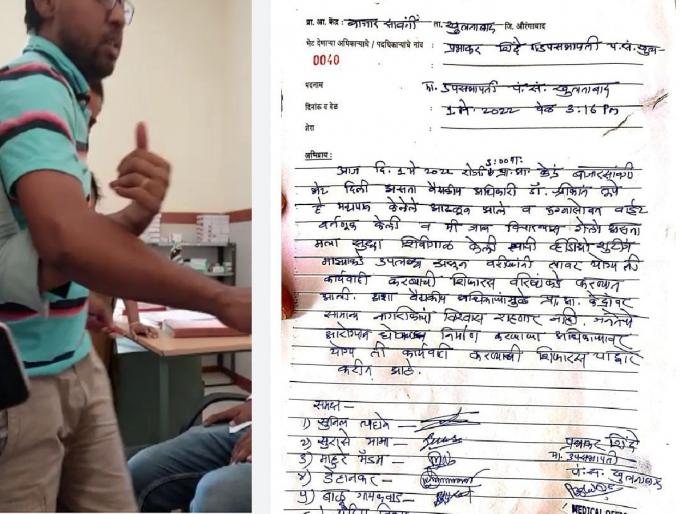 प्रा. आ. केंद्र : बाजार सावंगी ता. खुलताबाद जि. औरंगाबाद
भेट देणाऱ्या अधिकाऱ्याचे / पदाधिकाऱ्याचे नांव : प्रभाकर शिंदे उपसभापती पं.सं. खुल-
0040
पदनाम मा. उपसभापती पं. सं. खुलताबाद
दिनांक व वेळ : 1 मे. 2022 वेळ 3:16 Pm
शेरा
अभिप्राय :
आज दि. 1 मे 2022 रोजी प्रा. आ. केंद्र बाजारसांवगी
भेट दिली असता वैद्यकीय अधिकारी डॉ.
हे मद्यपान केलेले आढळून आले व रुग्णासोबत वाईट
वर्तणूक केली व मी जाब विचारण्यास गेलो असता
मला सुद्धा शिवीगाळ केली त्याची व्हिडीओ शुटींग
माझ्याकडे उपलब्ध असून वरीलप्रमाणे त्यावर योग्य ती
कार्यवाही करण्याची शिफारस वरिष्ठांकडे करण्यात
आली. अशा वैद्यकीय अधिकाऱ्यामुळे प्रा. आ. केंद्रावर
सामान्य नागरीकांचा विश्वास राहणार नाही. जनतेचे
आरोग्यास धोका निर्माण करणाऱ्या अधिकाऱ्यावर
योग्य ती कार्यवाही करण्याची शिफारस
करीत आहे.
समक्ष —
1) सुनिल
2) सुरासे मामा —
3) माहुरे मॅडम —
४)
५) बाळु गायकवाड —
प्रभाकर शिंदे
मा. उपसभापती
पं. स. खुलताबाद